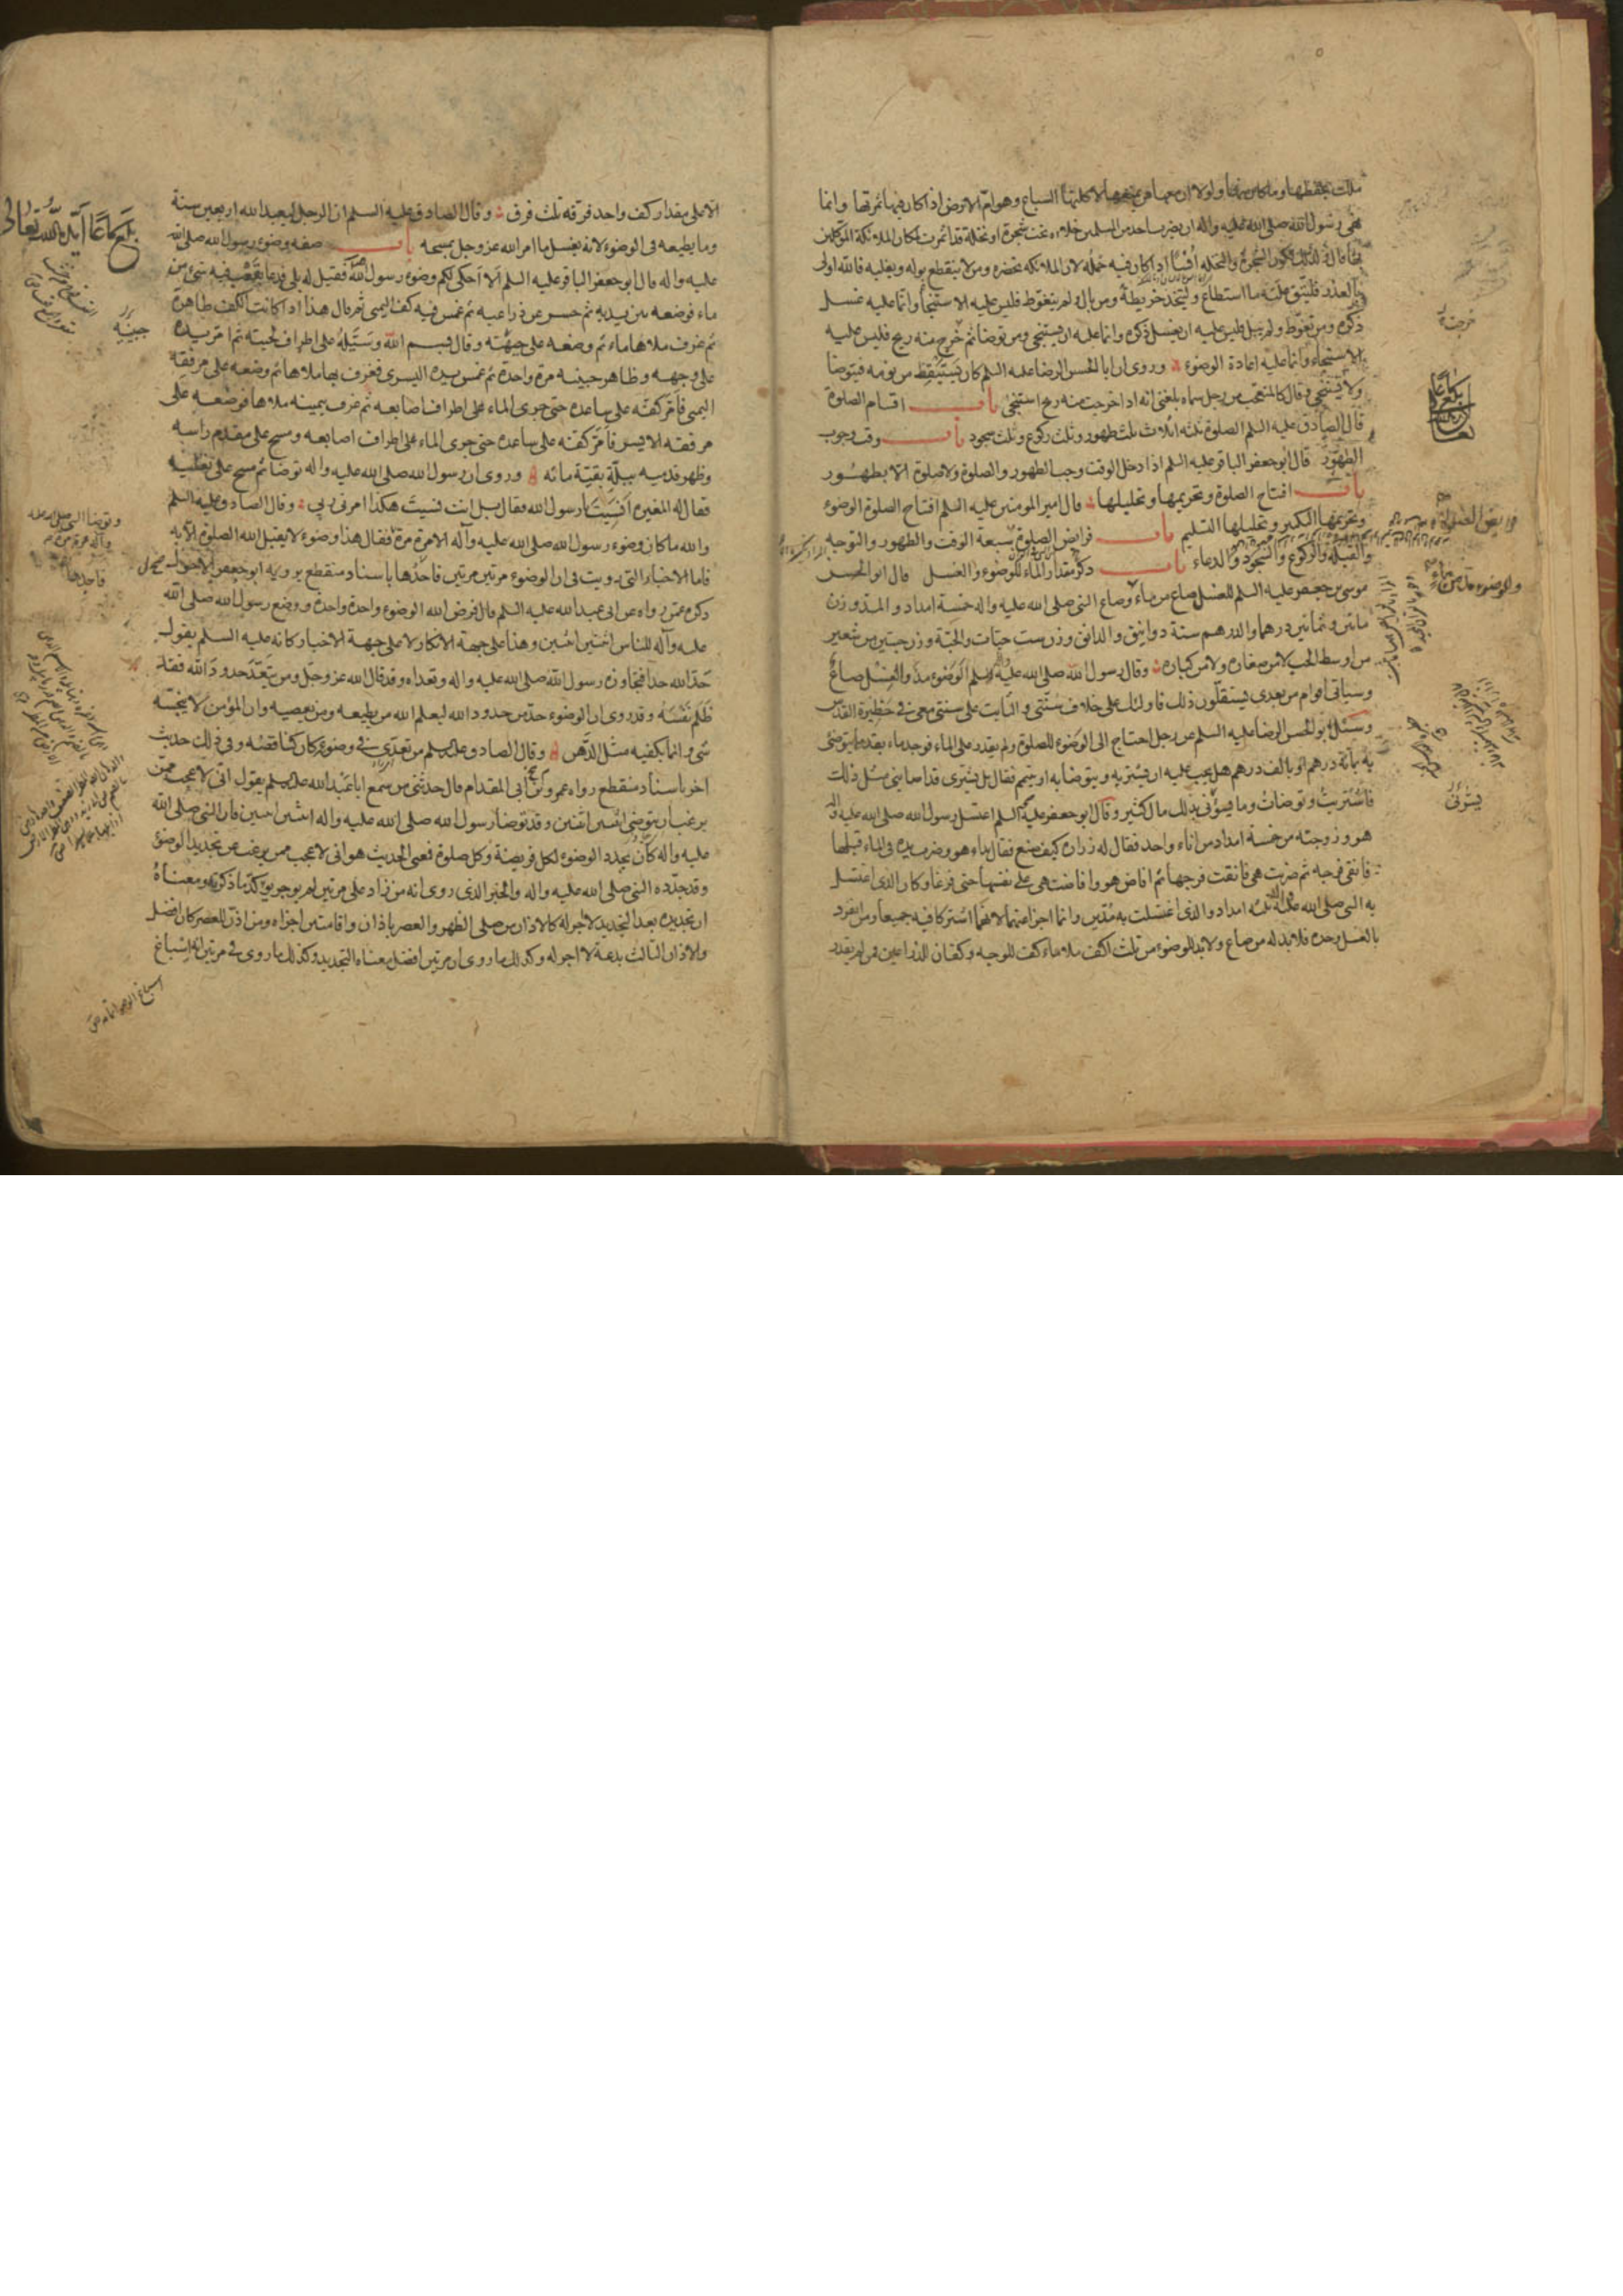 ملكين يحفظانها وما كان منها ولولا ان معها من يمنعها لاكلتها السباع وهوام الارض اذا كان فيها ثمرتها وانما
نهى رسول الله صلى الله عليه واله ان يضرب احد من المسلمين خلاءه تحت شجرة او نخلة قد اثمرت لمكان الملائكة الموكلين
بها قال ولذلك يكون للشجرة والنخلة اُنسًا اذا كان فيه حمله لان الملائكة تحضره ومن لا ينقطع بوله ويغلبه فالله اولى
بالعذر فليتق علته ما استطاع وليتخذ خريطة ومن بال ولم يتغوط فليس عليه الاستنجاء وانما عليه غسل
ذكره ومن تغوط ولم يبل فليس عليه ان يغسل ذكره وانما عليه ان يستنجى ومن توضا ثم خرج منه ريح فليس عليه
الاستنجاء وانما عليه اعادة الوضوء وروى ان ابا الحسن الرضا عليه السلم كان يستيقظ من نومه فيتوضا
ولا يستنجى وقال كالمتعجب من رجل سماه بلغنى انه اذا خرجت منه ريح استنجى باب اقسام الصلوة
قال الصادق عليه السلم الصلوة ثلثة اثلاث ثلث طهور وثلث ركوع وثلث سجود باب وقت وجوب
الطهور قال ابو جعفر الباقر عليه السلم اذا دخل الوقت وجب الطهور والصلوة ولا صلوة الا بطهور
باب افتتاح الصلوة وتحريمها وتحليلها قال امير المومنين عليه السلم افتتاح الصلوة الوضوء
وتحريمها التكبير وتحليلها التسليم باب فرايض الصلوة سبعة الوقت والطهور والتوجه
والقبلة والركوع والسجود والدعاء باب ذكر مقدار الماء للوضوء والغسل قال ابو الحسن
موسى بن جعفر عليه السلم للغسل صاع من ماء وصاع النبى صلى الله عليه واله خمسة امداد والمد وزن
مائتين وثمانين درهما والدرهم ستة دوانيق والدانق وزن ست حبات والحبة وزن حبتين من شعير
من اوسط الحب لا من صغاره ولا من كباره وقال رسول الله صلى الله عليه واله وسلم الوضوء مد والغسل صاع
وسياتى اقوام من بعدى يستقلون ذلك فاولئك على خلاف سنتى والثابت على سنتى معى فى حظيرة القدس
وسئل ابو الحسن الرضا عليه السلم عن رجل احتاج الى الوضوء للصلوة ولم يقدر على الماء فوجد ماء بقدر ما يتوضى
به بمائة درهم او بالف درهم هل يجب عليه ان يشتريه ويتوضا به او يتيمم فقال بل يشترى قد اصابنى مثل ذلك
فاشتريت وتوضات وما يسوءنى بذلك مال كثير وقال ابو جعفر عليه السلم اغتسل رسول الله صلى الله عليه واله
هو وزوجته من خمسة امداد من اناء واحد فقال له زراره كيف صنع فقال بداء هو وضرب يده فى الماء قبلها
فانقى فرجه ثم ضربت هى فانقت فرجها ثم افاض هو وافاضت هى على نفسها حتى فرغا وكان الذى اغتسل
به النبى صلى الله عليه واله ثلثه امداد والذى اغتسلت به مدين وانما اجزا عنهما لانهما اشتركا فيه جميعا ومن انفرد
بالغسل وحده فلا بد له من صاع ولا بد للوضوء من ثلث اكف ملاء ماء كف للوجه وكفان للذراعين فمن لم يقدر
الا على مقدار كف واحد فرقه ثلث فرق وقال الصادق عليه السلم ان الرجل ليعبد الله اربعين سنة
وما يطيعه فى الوضوء لانه يغسل ما امر الله عز وجل بمسحه باب صفة وضوء رسول الله صلى الله
عليه واله قال ابو جعفر الباقر عليه السلم الا احكى لكم وضوء رسول الله فقيل له بلى فدعا بقعب فيه شئ من
ماء فوضعه بين يديه ثم حسر عن ذراعيه ثم غمس فيه كفه اليمنى ثم قال هذا اذا كانت الكف طاهرة
ثم غرف ملاها ماء ثم وضعه على جبهته وقال بسم الله وسيله على اطراف لحيته ثم امر يده
على وجهه وظاهر جبينه مرة واحدة ثم غمس يده اليسرى فغرف بها ملاها ثم وضعه على مرفقه
اليمنى فامر كفه على ساعده حتى جرى الماء على اطراف اصابعه ثم غرف بيمينه ملاها فوضعه على
مرفقه الايسر فامر كفه على ساعده حتى جرى الماء على اطراف اصابعه ومسح على مقدم راسه
وظهر قدميه ببلة بقية مائه وروى ان رسول الله صلى الله عليه واله توضا ثم مسح على نعليه
فقال له المغيرة انسيت يا رسول الله فقال بل انت نسيت هكذا امرنى ربى وقال الصادق عليه السلم
والله ما كان وضوء رسول الله صلى الله عليه وآله الا مرة مرة فقال هذا وضوء لا يقبل الله الصلوة الا به
فاما الاخبار التى رويت فى ان الوضوء مرتين مرتين فاحدها باسناد منقطع يرويه ابو جعفر الاحول
ذكره عمن رواه عن ابى عبد الله عليه السلم قال فرض الله الوضوء واحدة واحدة ووضع رسول الله صلى الله
عليه وآله للناس اثنتين اثنتين وهذا على جهة الانكار لا على جهة الاخبار كانه عليه السلم يقول
حد الله حدا فتجاوزه رسول الله صلى الله عليه واله وتعداه وقد قال الله عز وجل ومن يتعد حدود الله فقد
ظلم نفسه وقد روى ان الوضوء حد من حدود الله ليعلم الله من يطيعه ومن يعصيه وان المؤمن لا ينجسه
شى وانما يكفيه مثل الدهن وقال الصادق عليه السلم من تعدى فى وضوئه كان كناقضه وفى ذلك حديث
اخر باسناد منقطع رواه عمرو بن ابى المقدام قال حدثنى من سمع ابا عبد الله عليه السلم يقول انى لاعجب ممن
يرغب ان يتوضى اثنتين اثنتين وقد توضا رسول الله صلى الله عليه واله اثنتين اثنتين فان النبى صلى الله
عليه واله كان يجدد الوضوء لكل فريضة وكل صلوة فمعنى الحديث هو انى لاعجب ممن يرغب عن تجديد الوضوء
وقد جدده النبى صلى الله عليه واله والخبر الذى روى انه من زاد على مرتين لم يوجر يوكد ما ذكرته ومعناه
ان تجديده بعد التجديد لا اجر له كالاذان من صلى الظهر والعصر باذان واقامتين اجزاه ومن اذن للعصر كان افضل
والاذان الثالث بدعة لا اجر له وكذلك ما روى ان مرتين افضل معناه التجديد وكذلك ما روى فى مرتين انه اسباغ